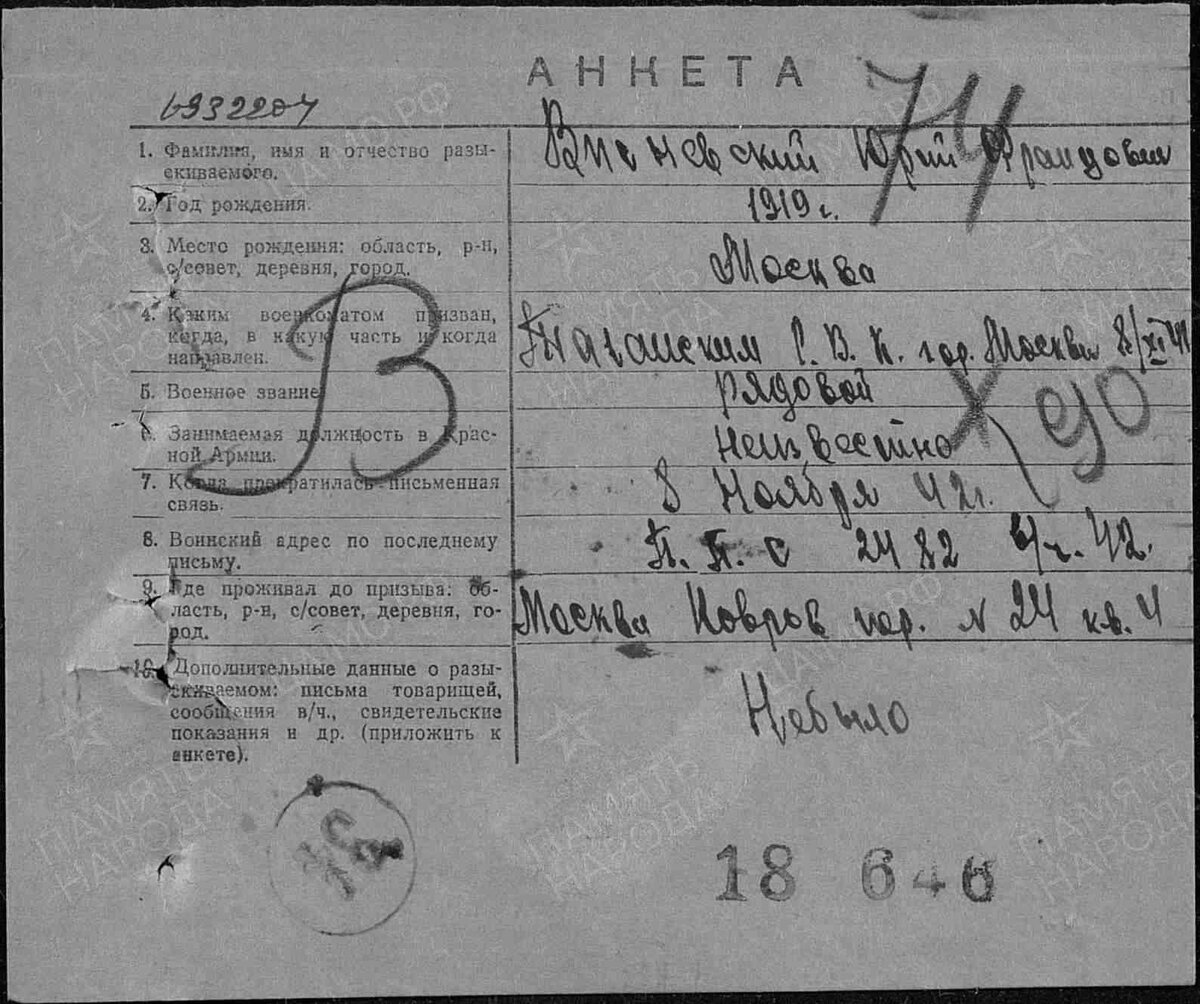 АНКЕТА
74
6932207
1. Фамилия, имя и отчество разы-
скиваемого.
Висневский Юрий Францович
2. Год рождения.
1919 г.
3. Место рождения: область, р-н,
с/совет, деревня, город.
Москва
4. Каким военкоматом призван,
когда, в какую часть и когда
направлен.
Таганским Р. В. К. гор. Москвы 8/XI 41
5. Военное звание
рядовой
6. Занимаемая должность в Крас-
ной Армии.
Неизвестно
7. Когда прекратилась письменная
связь.
8 Ноября 42г.
8. Воинский адрес по последнему
письму.
П. П. С 2482 в/ч. 42.
9. Где проживал до призыва: об-
ласть, р-н, с/совет, деревня, го-
род.
Москва Ковров пер. N 24 кв. 4
10. Дополнительные данные о разы-
скиваемом: письма товарищей,
сообщения в/ч., свидетельские
показания и др. (приложить к
анкете).
Небыло
В
90
18 646
ПАМЯТЬ
НАРОДА